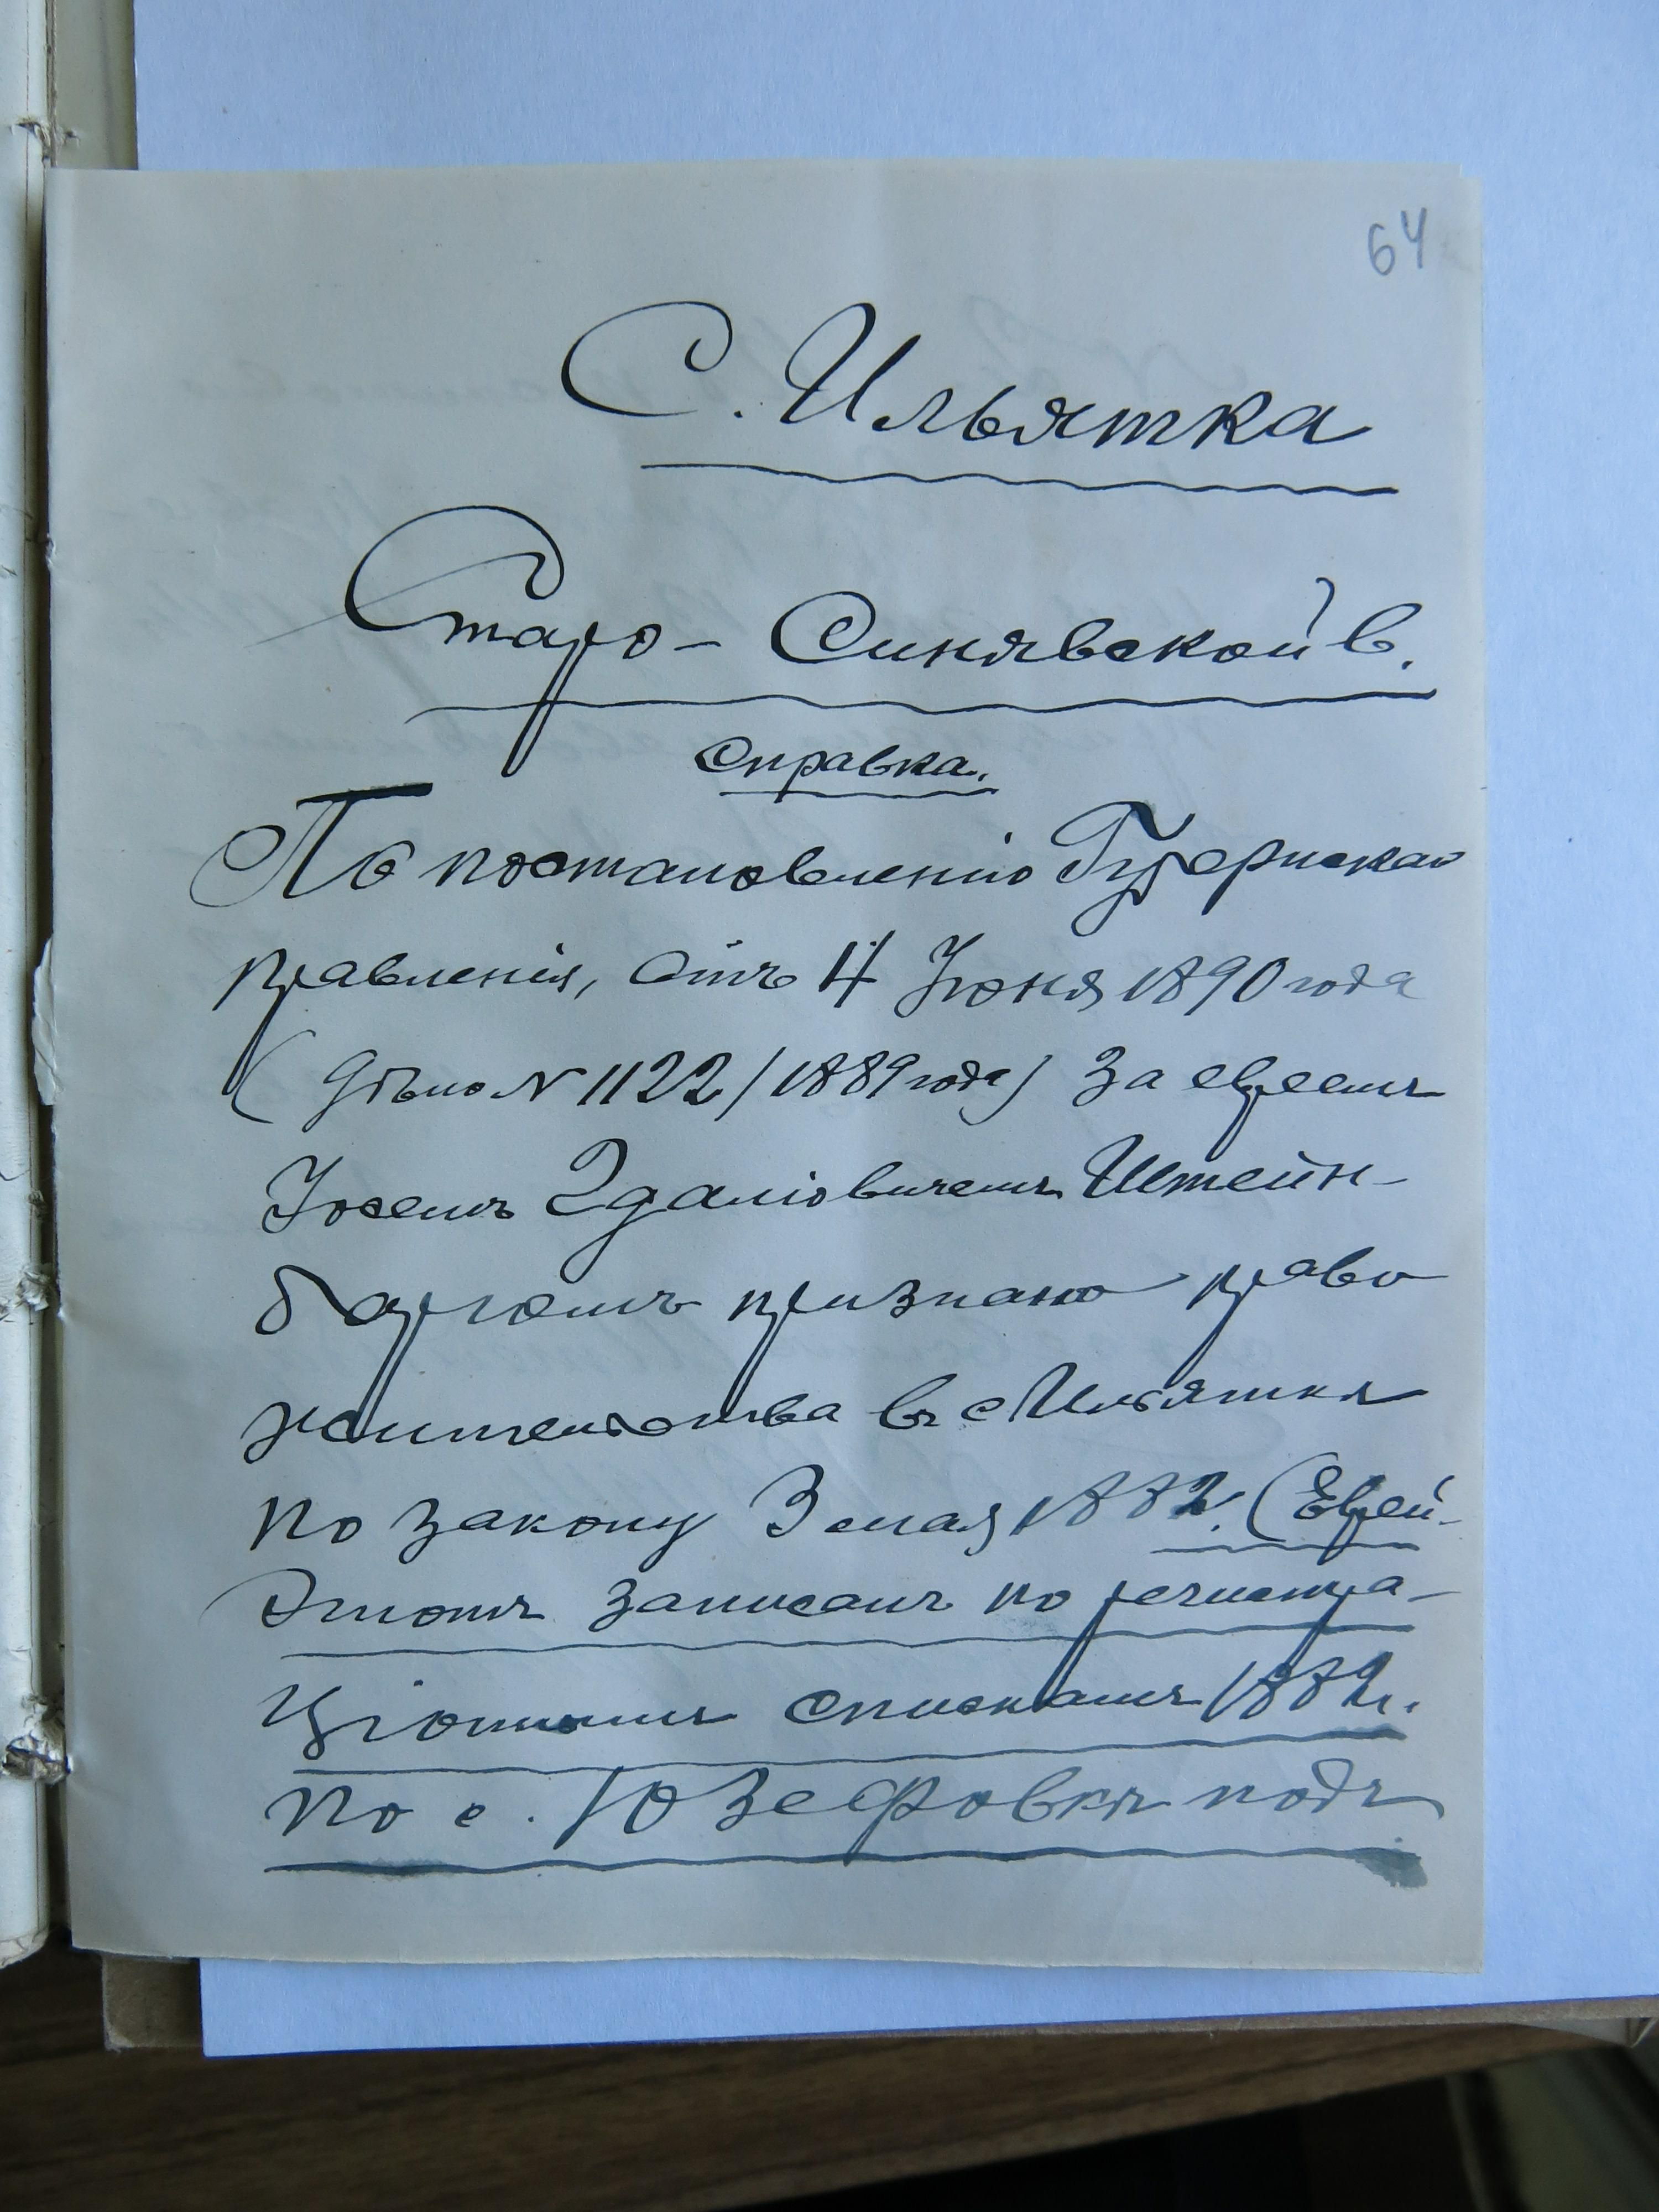 64
С. Ильятка
Старо-Синявской в.
Справка.
По постановленію Губернскаго
правленія, отъ 4 Іюня 1890 года
(дѣло № 1122/1889 года) за евреемъ
Іосемъ Эдаліовичемъ Штейн-
баргомъ признано право
жительства въ с Ильяткѣ
по закону 3 мая 1882. (Еврей-
Этотъ записанъ по регистра-
ціоннымъ спискамъ 1882 г.
по с. Юзефовкѣ подъ